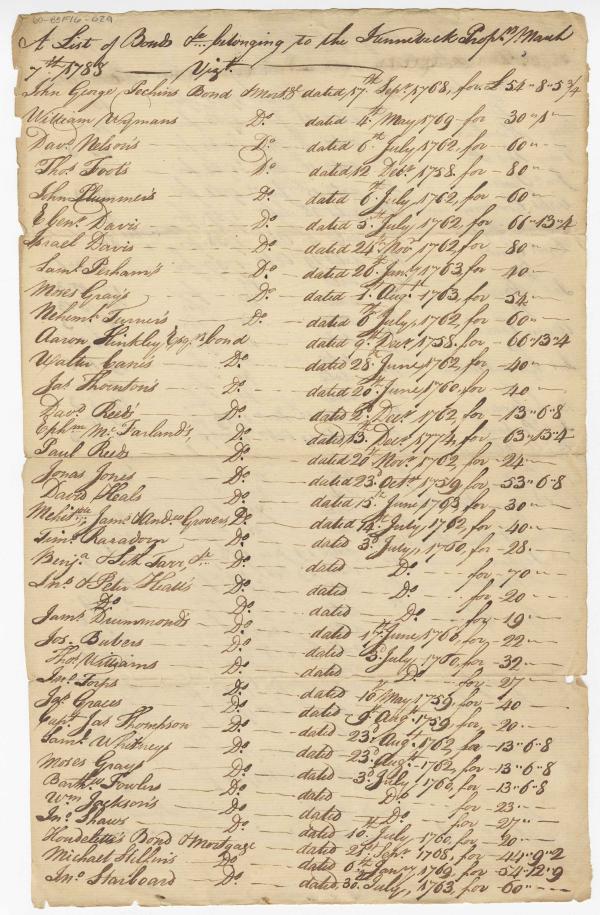 60-BSF16-029
A List of Bonds &c. belonging to the Kennebeck Prop.rs March
7th 1783 Viz.t
John George Bond & Mort.ge dated 17th Sept. 1768, for £54-8-5 3/4
William Wymans D.o dated 4th May 1769 for 30"1"
Dav.d Nelson's D.o dated 6th July, 1762, for 60"-
Tho.s Foot's D.o dated 12 Dec.r 1758. for 80"
John Plummer's D.o dated 6th July, 1762, for 60"
Eben.r Davis D.o dated 5th July, 1762, for 66"13"4
Israel Davis D.o dated 24th Nov.r 1762 for 80
Sam.l Perham's D.o dated 26th Jan.y 1763, for 40
Moses Gray's D.o dated 1. Aug.t 1763, for 54
Nehem.h Turner's D.o dated 6th July, 1762, for 60"
Aaron Hinkley Esq.rs Bond dated 9th Dec.r 1758. for 66-13-4
Walter Canes D.o dated 28th June, 1762, for 40
Ja.s Thornton's D.o dated 20th June, 1760, for 40
Dav.d Reed's D.o dated 2d Dec.r 1762 for 13"6"8
Ephm. Mc.Farland's, D.o dated, 13th Dec.r 1774, for 63"13"4
Paul Reeds D.o dated 20th Nov.r 1762, for 24
Jonas Jones D.o dated 23d Oct.r 1759, for 53"6"8
David Heals D.o dated 15th June, 1763, for 30"
James & And.w Grovers D.o dated 14th July, 1762, for 40
D.o dated 3d July, 1760, for 28.
Benj.a & Seth Tarr, &c D.o dated D.o for 70"
Jn.o & Peter Heal's D.o dated D.o for 20"
D.o D.o dated D.o for 19"
Jam.s Drummond's D.o dated 1st June, 1766, for 22
Jos. Bubers D.o dated 3d July, 1760, for 32
Tho.s Williams D.o dated D.o for 27
Jn.o Torps D.o dated 16 May 1759, for 40
Graces D.o dated 9th Aug. 1759, for 20
Capt. Ja.s Thompson D.o dated 23d Aug.t 1762, for 13"6"8
Sam.l Whitneys D.o dated 23d Aug.t 1762, for 13"6"8
Moses Grays D.o dated 3d July, 1760, for 13"6"8
Barth.w Fowlers D.o dated D.o for 23
Wm. Jackson's D.o dated D.o for 27"
Jn.o Shaws D.o dated 10th July 1760, for 20
Houdelette's Bond & Mortgage dated 28th Sept. 1768, 44"9"2
Michael Stilfins D.o dated 6th Jan.y 1769, 54"12"9
Jn.o Starboard D.o dated, 30. July, 1763, for 60"